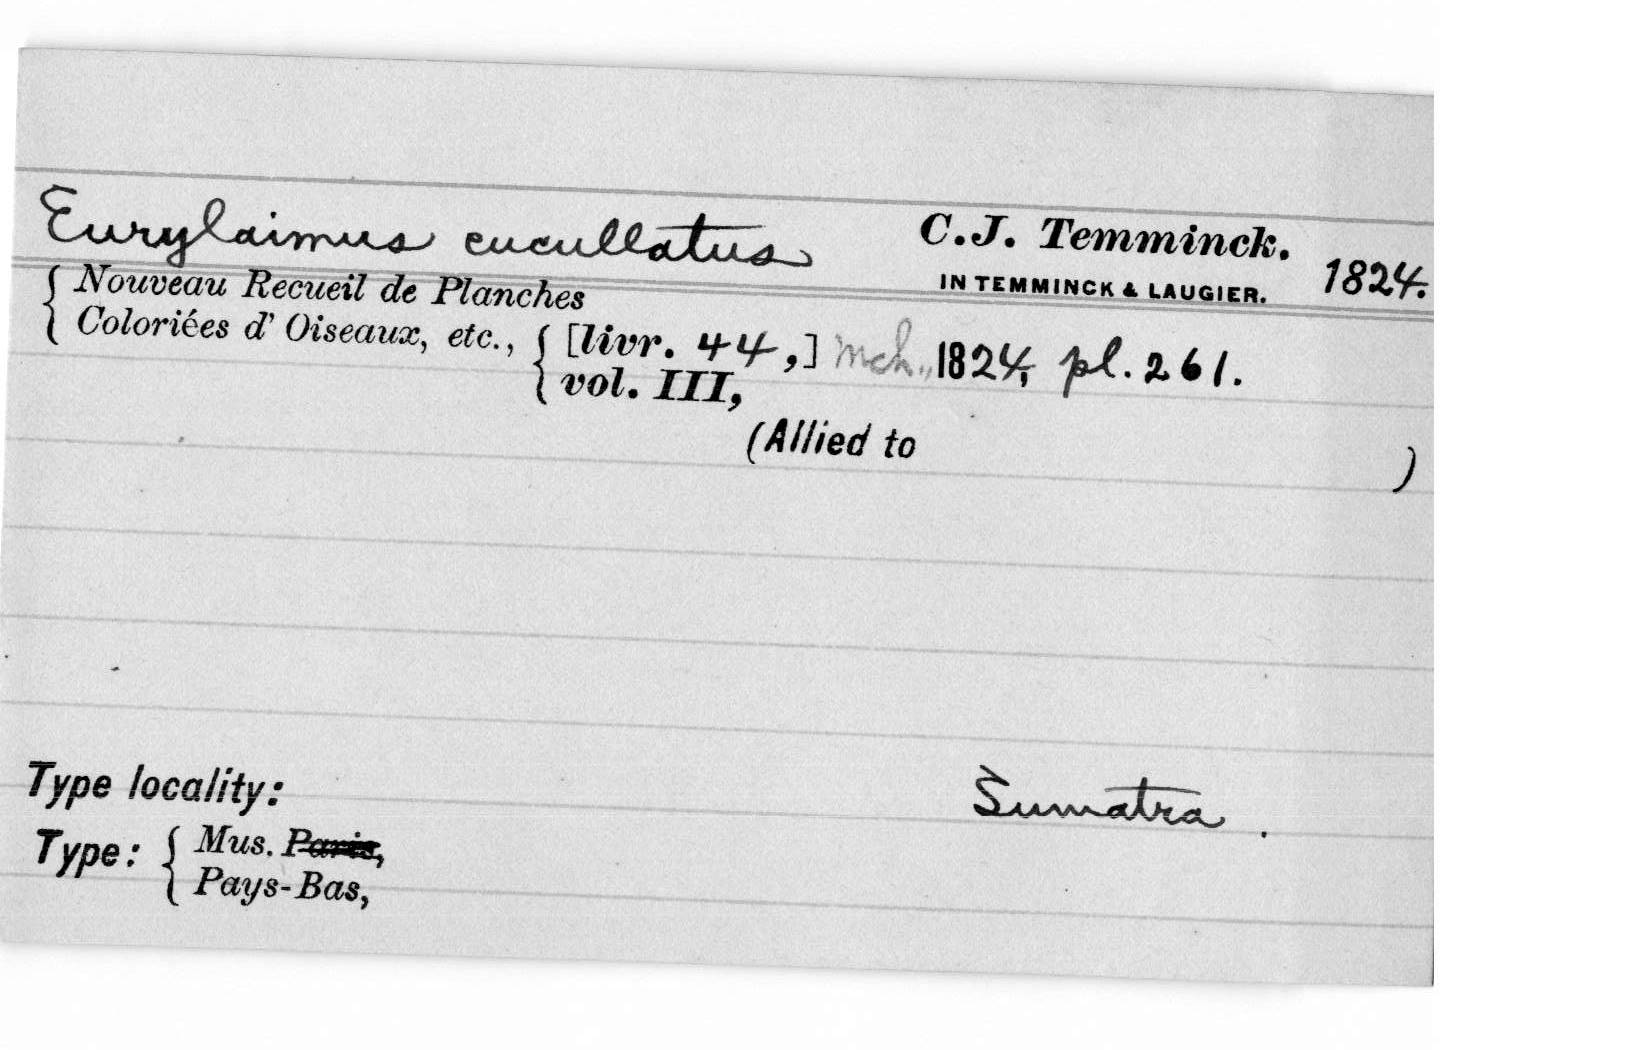 Eurylaimus cucullatus C.J. Temminck.
IN TEMMINCK & LAUGIER. 1824.
{ Nouveau Recueil de Planches
Coloriées d' Oiseaux, etc., { [livr. 44,] Mch., 1824, pl. 261.
vol. III,
(Allied to )
Type locality: Sumatra.
Type: { Mus. Paris,
Pays-Bas,